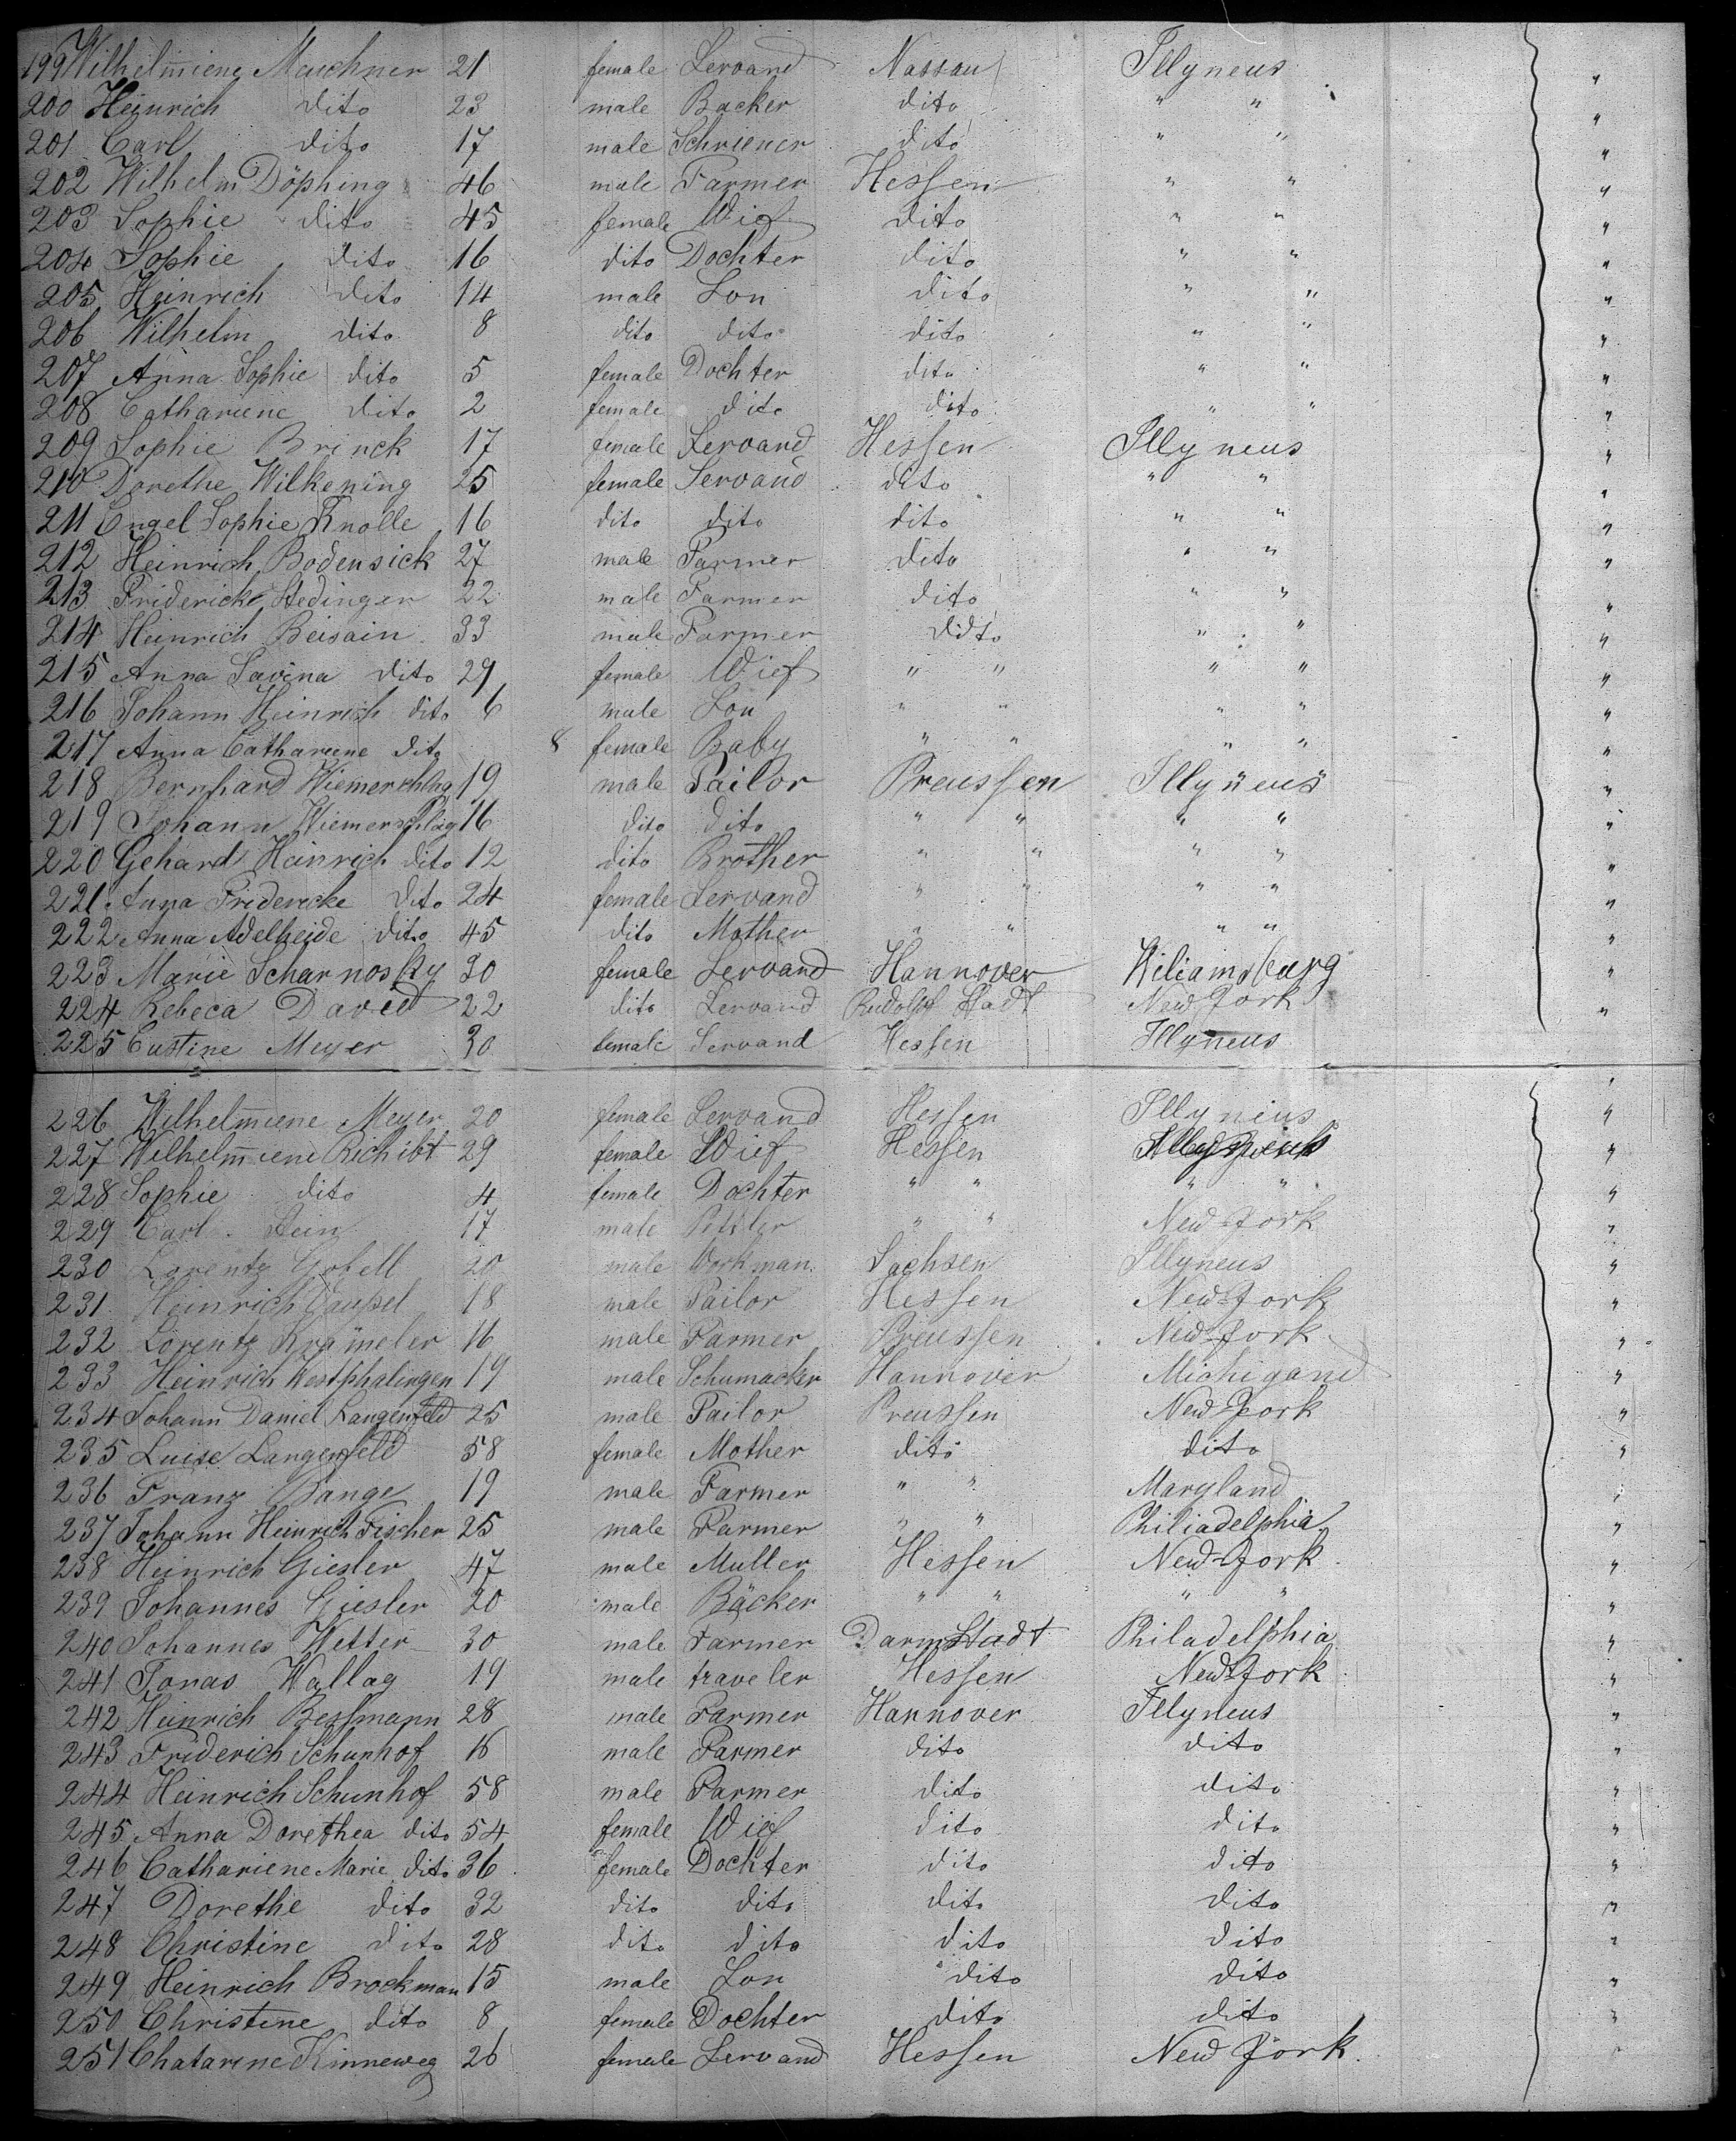 199 Wilhelmiene Meuchner 21 female Servand Nassau Illyneus "
200 Heinrich dito 23 male Backer dito " " "
201 Carl dito 17 male Schriener dito " " "
202 Wilhelm Döphing 46 male Farmer Hessen " " "
203 Sophie dito 45 female Wief dito " " "
204 Sophie dito 16 dito Dochter dito " " "
205 Heinrich dito 14 male Son dito " " "
206 Wilhelm dito 8 dito dito dito " " "
207 Anna Sophie dito 5 female Dochter dito " " "
208 Cathariene dito 2 female dito dito " " "
209 Sophie Brinck 17 female Servand Hessen Illyneus "
210 Dorethe Wilkening 25 female Servand dito " " "
211 Engel Sophie Knolle 16 dito dito dito " " "
212 Heinrich Bodensick 27 male Farmer dito " " "
213 Friderick Stedinger 22 male Farmer dito " " "
214 Heinrich Beisain 33 male Farmer dito " " "
215 Anna Savina dito 29 female Wief " " " " "
216 Johann Heinrich dito 6 male Son " " " " "
217 Anna Cathariene dito 8 female Baby " " " " "
218 Bernhard Wiemerschlag 19 male Tailor Preussen Illyneus "
219 Johann Wiemerschlag 16 dito dito " " " " "
220 Gehard Heinrich dito 12 dito Brother " " " " "
221 Anna Fridericke dito 24 female Servand " " " " "
222 Anna Adelheide dito 45 dito Mother " " " " "
223 Marie Scharnosky 30 female Servand Hannover Wiliamsburg "
224 Rebeca David 22 dito Servand Rudolph Stadt New York "
225 Custine Meyer 30 female Servand Hessen Illyneus
226 Wilhelmiene Meyer 20 female Servand Hessen Illyneius "
227 Wilhelmiene Richibt 29 female Wief Hessen "
228 Sophie dito 4 female Dochter " " " " "
229 Carl Stein 17 male " " New York "
230 Lorentz 20 male Workman Sachsen Illyneus "
231 Heinrich 18 male Tailor Hessen New York "
232 Lorentz Krämeler 16 male Farmer Preussen New York "
233 Heinrich Westphalingen 19 male Schumacker Hannover Michigand "
234 Johann Daniel Langenfeld 25 male Tailor Preussen New York "
235 Luise Langenfeld 58 female Mother dito dito "
236 Franz Bange 19 male Farmer " " Maryland "
237 Johann Heinrich Fischer 25 male Farmer " " Philiadelphia "
238 Heinrich Giesler 47 male Muller Hessen New York "
239 Johannes Giesler 20 male Bäcker " " " " "
240 Johannes Wetter 30 male Farmer Darmstadt Philadelphia "
241 Jonas Wallag 19 male traveler Hessen New York "
242 Heinrich Bessmann 28 male Farmer Hannover Illyneus "
243 Friderich Schunhof 16 male Farmer dito dito "
244 Heinrich Schunhof 58 male Farmer dito dito "
245 Anna Dorethea dito 54 female Wief dito dito "
246 Cathariene Marie dito 36 female Dochter dito dito "
247 Dorethe dito 32 dito dito dito dito "
248 Christine dito 28 dito dito dito dito "
249 Heinrich Brockman 15 male Son dito dito "
250 Christine dito 8 female Dochter dito dito "
251 Chatarine Kinneweg 26 female Servand Hessen New York